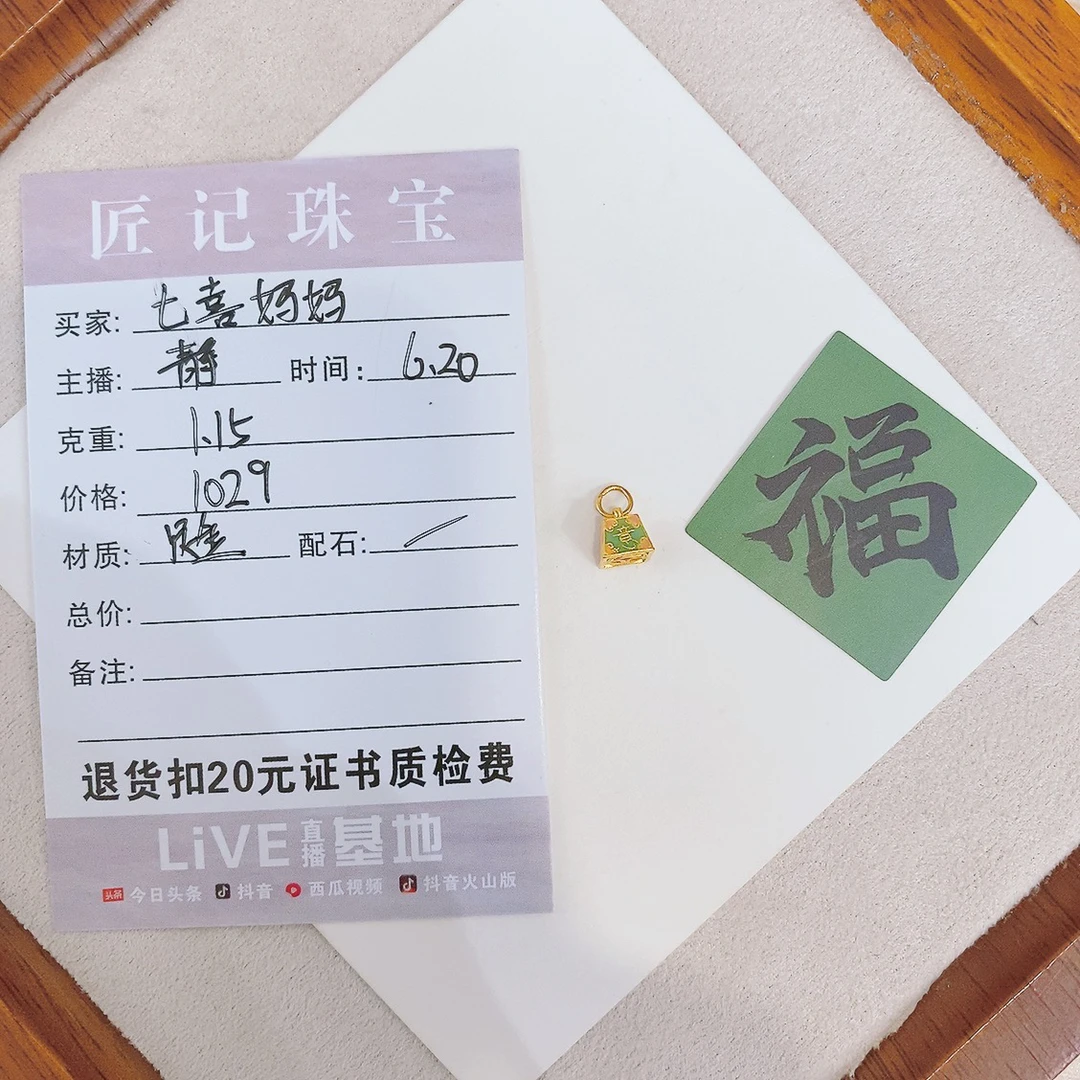 匠记珠宝
买家: 七喜妈妈
主播: 静 时间: 6.20
克重: 1.15
价格: 1029
材质: 足金 配石: /
总价:
备注:
退货扣20元证书质检费
LiVE直播基地
头条 今日头条 抖音 西瓜视频 抖音火山版
福